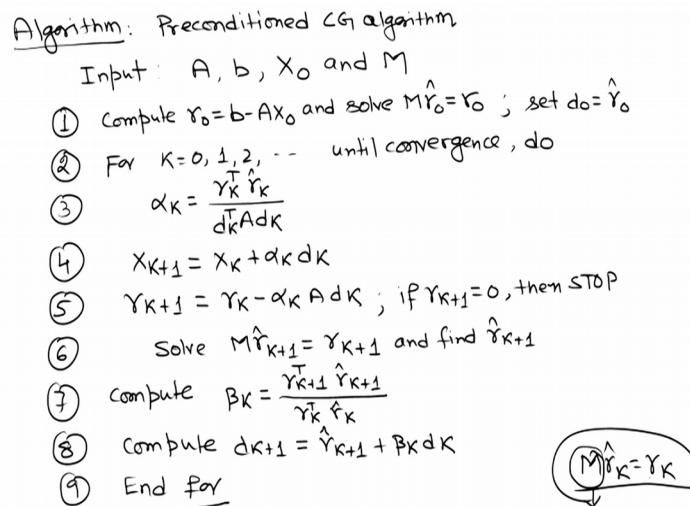 Algorithm: Preconditioned CG algorithm
Input: A, b, X₀ and M
① Compute r₀=b-AX₀ and solve Mr̂₀=r₀ ; set d₀=r̂₀
② For K=0, 1, 2, -- until convergence, do
③ αK = rKᵀ r̂K / dKᵀAdK
④ XK+1 = XK+αKdK
⑤ rK+1 = rK-αK AdK ; if rK+1=0, then STOP
⑥ Solve Mr̂K+1 = rK+1 and find r̂K+1
⑦ Compute βK = rᵀK+1 r̂K+1 / rKᵀ r̂K
⑧ Compute dK+1 = r̂K+1 + βKdK
⑨ End for
Mr̂K=rK